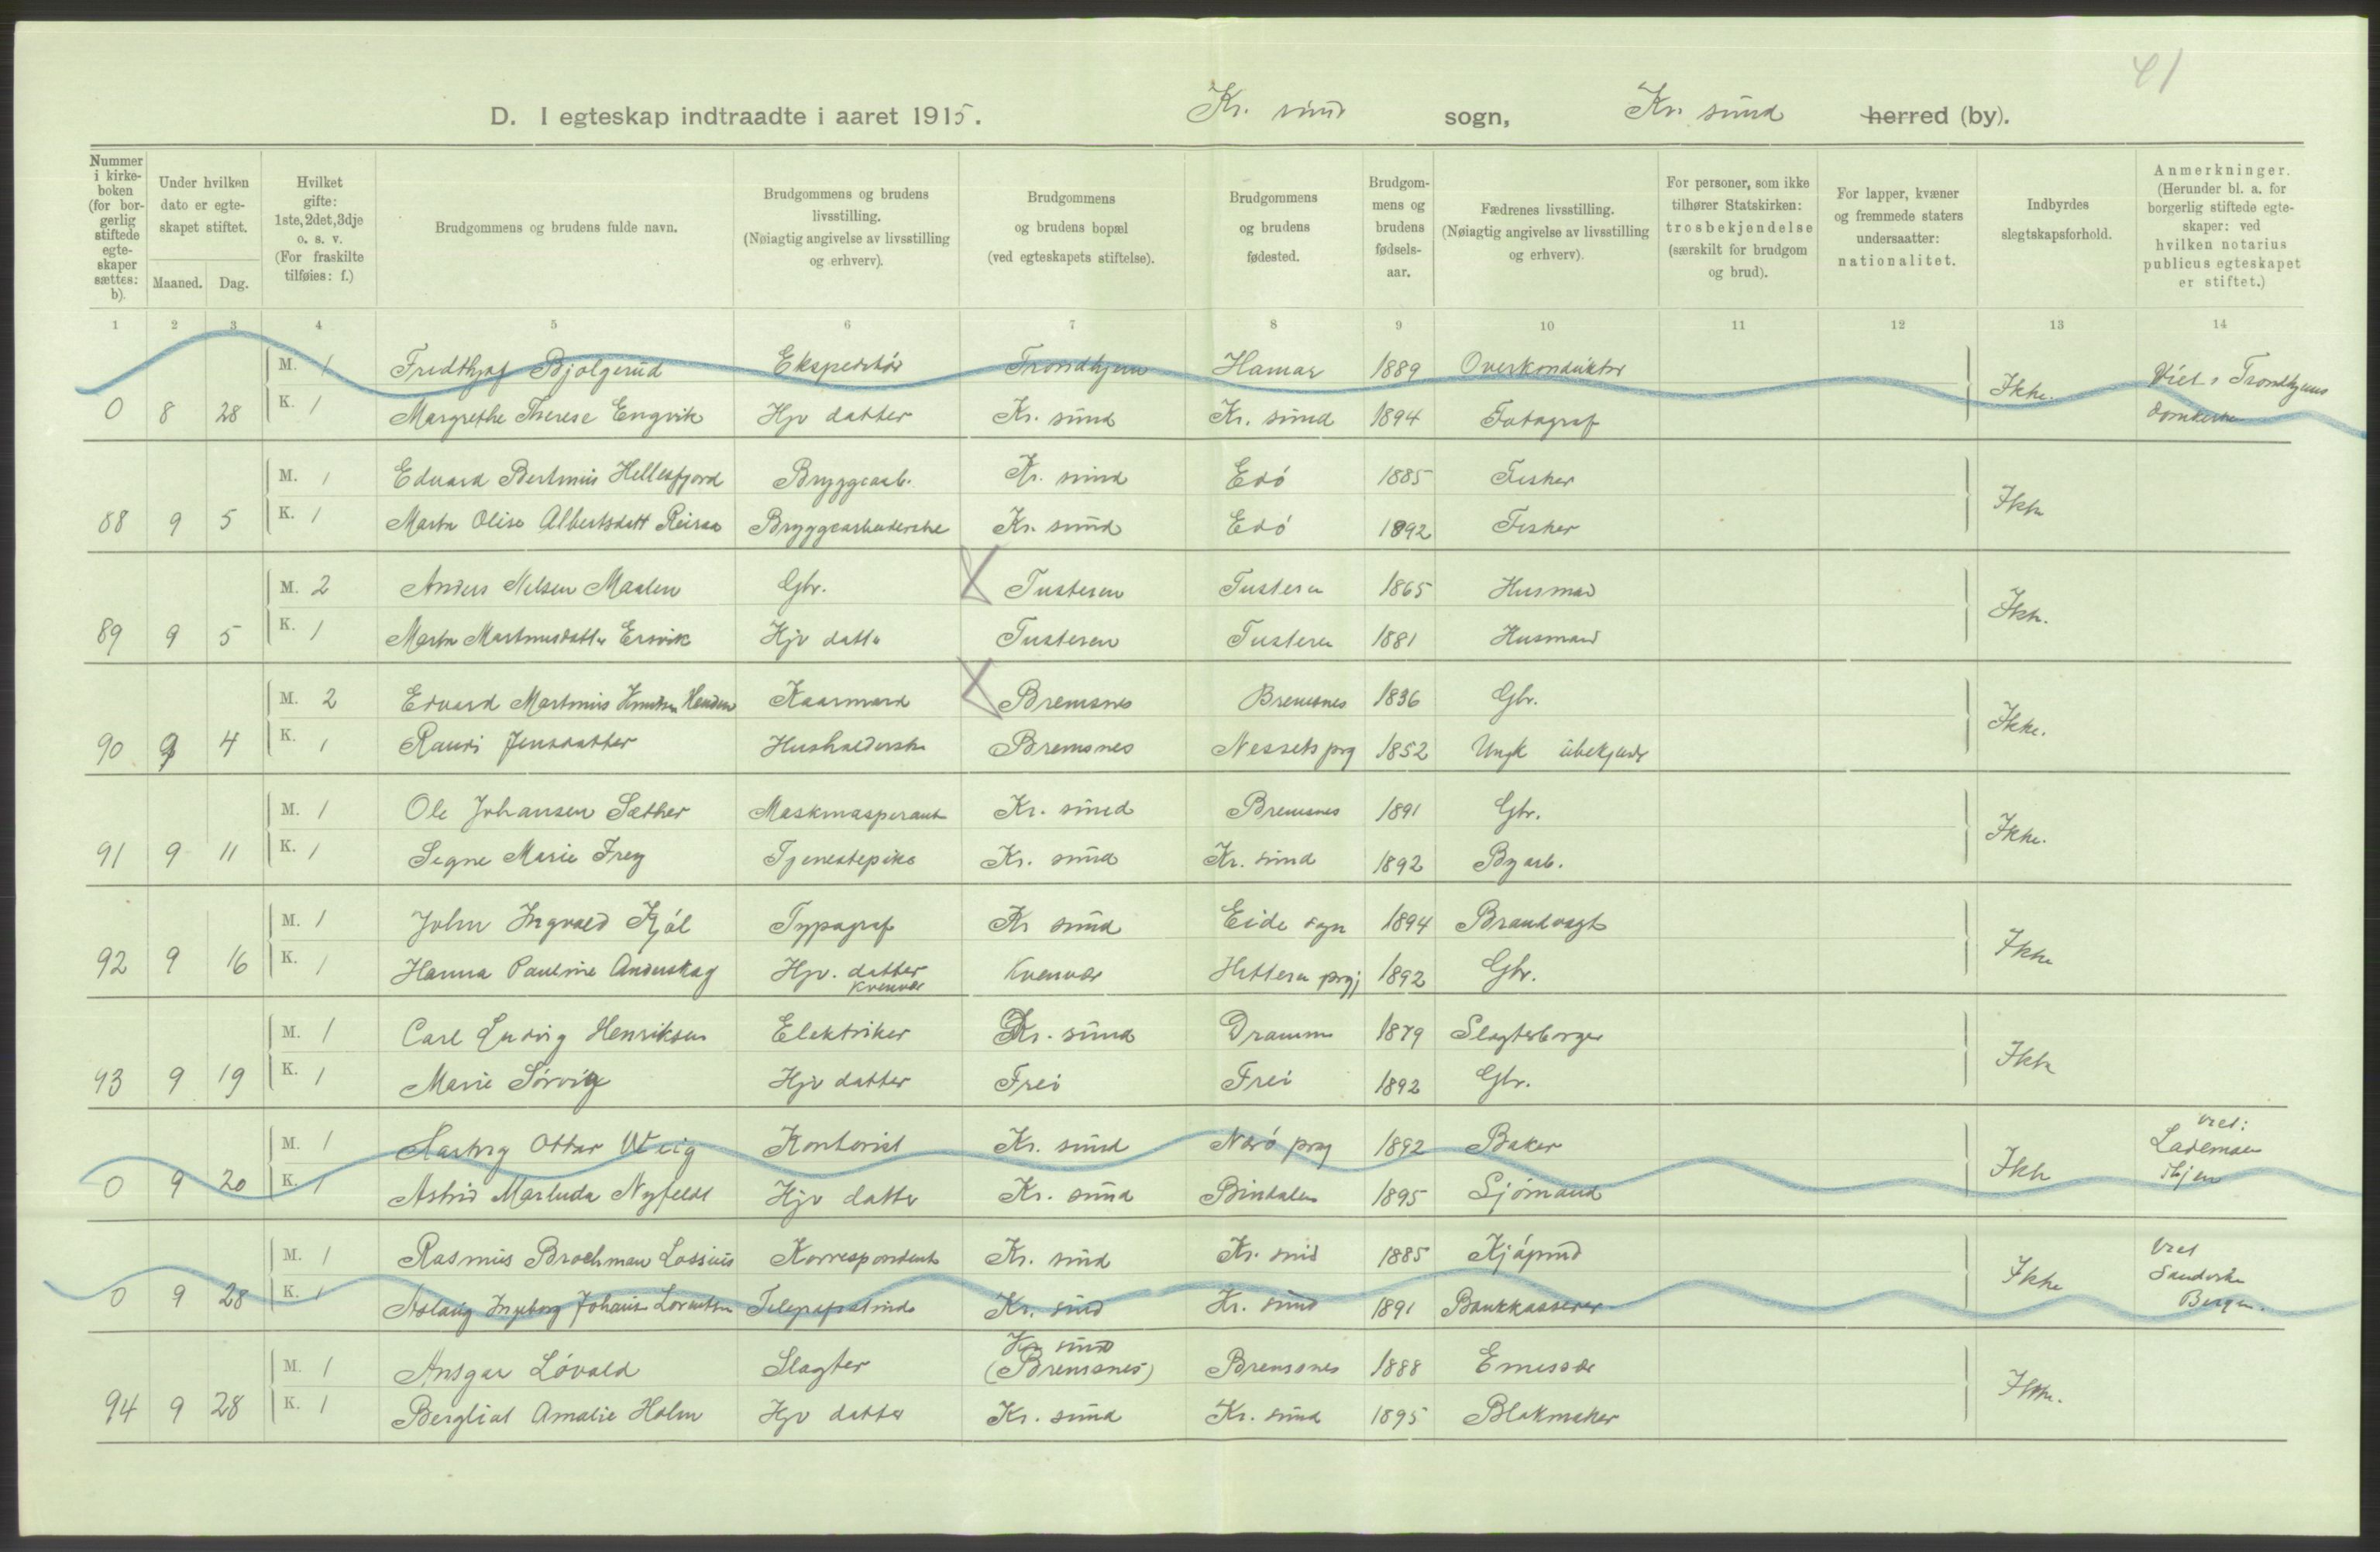 41
D. I egteskap indtraadte i aaret 1915. Kr. sund sogn, Kr. sund herred (by).
Nummer i kirkeboken (for borgerlig stiftede egteskaper sættes: b).
Under hvilken dato er egteskapet stiftet.
Maaned. Dag.
Hvilket gifte: 1ste, 2det, 3dje o. s. v. (For fraskilte tilføies: f.)
Brudgommens og brudens fulde navn.
Brudgommens og brudens livsstilling. (Nøiagtig angivelse av livsstilling og erhverv).
Brudgommens og brudens bopæl (ved egteskapets stiftelse).
Brudgommens og brudens fødested.
Brudgommens og brudens fødselsaar.
Fædrenes livsstilling. (Nøiagtig angivelse av livsstilling og erhverv).
For personer, som ikke tilhører Statskirken: trosbekjendelse (særskilt for brudgom og brud).
For lapper, kvæner og fremmede staters undersaatter: nationalitet.
Indbyrdes slegtskapsforhold.
Anmerkninger. (Herunder bl. a. for borgerlig stiftede egteskaper: ved hvilken notarius publicus egteskapet er stiftet.)
1 2 3 4 5 6 7 8 9 10 11 12 13 14
M. 1 Fredthjof Bjølgerud Ekspeditør Trondhjem Hamar 1889 Overkonduktør Ikke. Viet i Trondhjems
0 8 28 K. 1 Margrethe Therese Engvik Hjv datter Kr. sund Kr. sund 1894 Fotograf Domkirke
M. 1 Edvard Bertinius Hellesfjord Bryggearb. Kr. sund Edö 1885 Fisker Ikke
88 9 5 K. 1 Marta Olise Albertsdatt Bryggearbeiderske Kr. sund Edö 1892 Fisker
M. 2 Anders Nelsen Maalen Gbr. Tusteren Tusteren 1865 Husmand Ikke.
89 9 5 K. 1 Marta Martinusdatter Ersvik Hjv datte Tusteren Tusteren 1881 Husmand
M. 2 Edvard Martinius Knutsen Kaarmand Bremsnes Bremsnes 1836 Gbr. Ikke.
90 9 4 K. 1 Randi Jensdatter Husholderske Bremsnes Nessets prg 1852 Ungk ubekjendt
M. 1 Ole Johansen Sæther Maskinaspirant Kr. sund Bremsnes 1891 Gbr. Ikke.
91 9 11 K. 1 Signe Marie Frey Tjenestepike Kr. sund Kr. sund 1892 Byarb.
M. 1 John Ingvald Kjöl Typograf Kr sund Eide sogn 1894 Brandvagt Ikke
92 9 16 K. 1 Hanna Pauline Andreskag Hjv. datter Kvenvær Hitteren prgj 1892 Gbr.
Kvenvær
M. 1 Carl Ludvig Henriksen Elektriker Kr. sund Dramm 1879 Slagterborger Ikke
93 9 19 K. 1 Marie Sörvig Hjv datter Frei Frei 1892 Gbr.
viet:
M. 1 Hartvig Ottar Weig Kontorist Kr. sund Nærö prg 1892 Baker Ikke Lademoen
0 9 20 K. 1 Astrid Marluda Nyfeldt Hjv datte Kr. sund Bindalen 1895 Sjömand Thjem
M. 1 Rasmus Brochman Lossius Korrespondent Kr. sund Kr. sund 1885 Kjöpmd Ikke Viet
Sandvike
0 9 28 K. 1 Aslaug Ingeborg Johanne Lorentsen Telegrafistinde Kr. sund Kr. sund 1891 Bankkasserer Bergen.
Kr sund
M. 1 Ansgar Lövold Slagter (Bremsnes) Bremsnes 1888 Emissær Ikke.
94 9 28 K. 1 Bergliot Amalie Holm Hjv datter Kr. sund Kr. sund 1895 Blokmaker